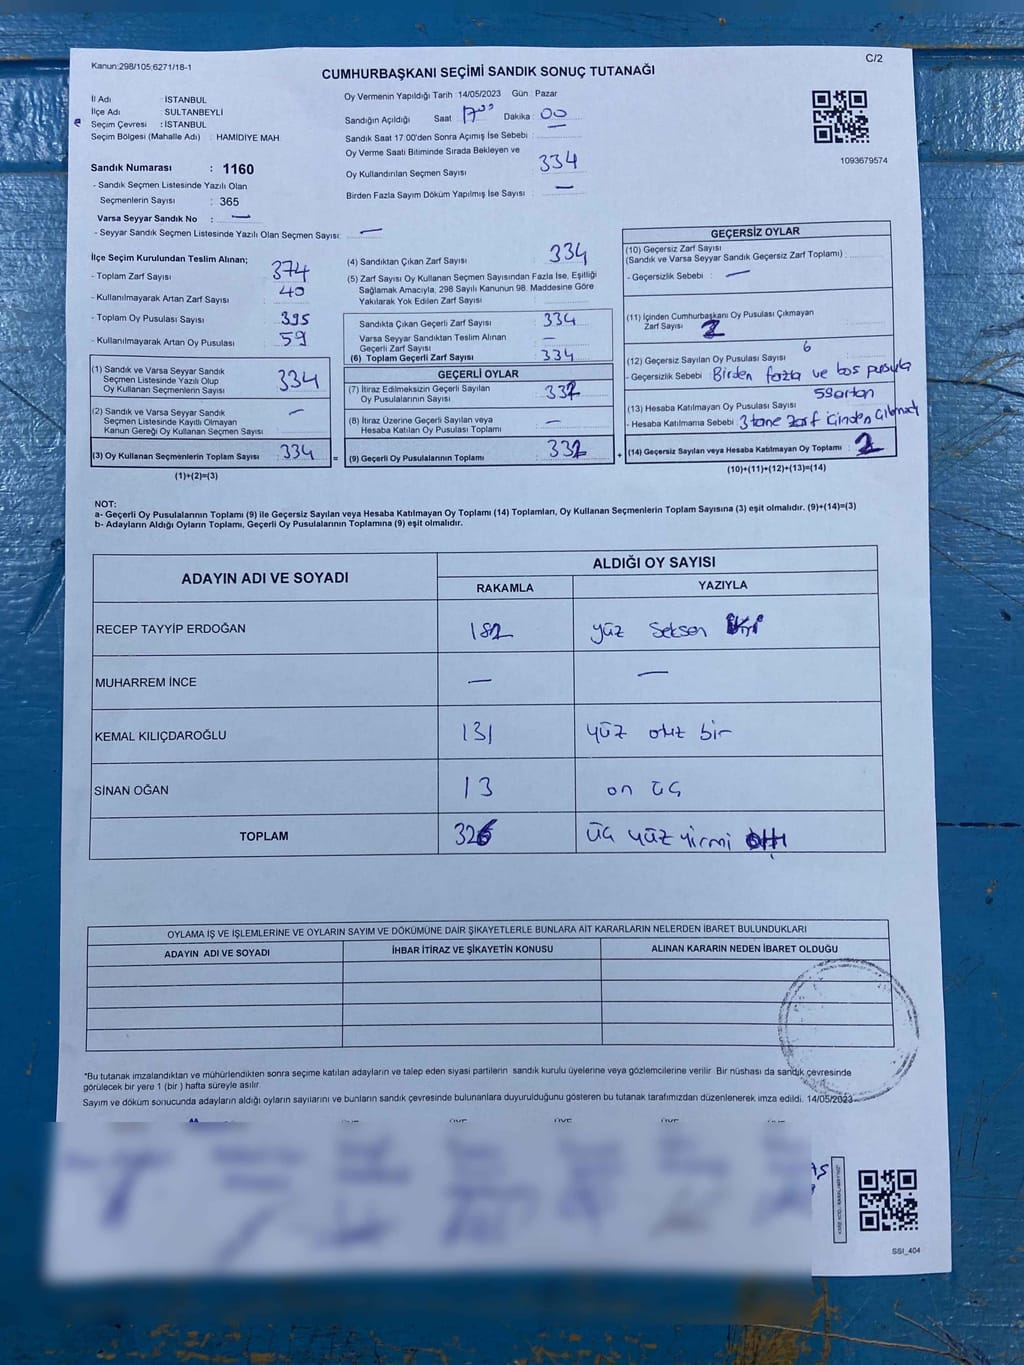 Kanun:298/105;6271/18-1
C/2
CUMHURBAŞKANI SEÇİMİ SANDIK SONUÇ TUTANAĞI
İl Adı : İSTANBUL
İlçe Adı : SULTANBEYLİ
Seçim Çevresi : İSTANBUL
Seçim Bölgesi (Mahalle Adı) : HAMİDİYE MAH.
Sandık Numarası : 1160
- Sandık Seçmen Listesinde Yazılı Olan
Seçmenlerin Sayısı : 365
Varsa Seyyar Sandık No : —
- Seyyar Sandık Seçmen Listesinde Yazılı Olan Seçmen Sayısı: —
Oy Vermenin Yapıldığı Tarih : 14/05/2023 Gün : Pazar
Sandığın Açıldığı Saat 17⁰⁰ Dakika 00
Sandık Saat 17:00'den Sonra Açımış İse Sebebi : —
Oy Verme Saati Bitiminde Sırada Bekleyen ve
Oy Kullandırılan Seçmen Sayısı : 334
Birden Fazla Sayım Döküm Yapılmış İse Sayısı : —
1093679574
İlçe Seçim Kurulundan Teslim Alınan;
- Toplam Zarf Sayısı : 374
- Kullanılmayarak Artan Zarf Sayısı : 40
- Toplam Oy Pusulası Sayısı : 395
- Kullanılmayarak Artan Oy Pusulası : 59
(1) Sandık ve Varsa Seyyar Sandık
Seçmen Listesinde Yazılı Olup
Oy Kullanan Seçmenlerin Sayısı : 334
(2) Sandık ve Varsa Seyyar Sandık
Seçmen Listesinde Kayıtlı Olmayan
Kanun Gereği Oy Kullanan Seçmen Sayısı : —
(3) Oy Kullanan Seçmenlerin Toplam Sayısı : 334 =
(1)+(2)=(3)
(4) Sandıktan Çıkan Zarf Sayısı : 334
(5) Zarf Sayısı Oy Kullanan Seçmen Sayısından Fazla İse, Eşitliği
Sağlamak Amacıyla, 298 Sayılı Kanunun 98. Maddesine Göre
Yakılarak Yok Edilen Zarf Sayısı :
Sandıkta Çıkan Geçerli Zarf Sayısı : 334
Varsa Seyyar Sandıktan Teslim Alınan
Geçerli Zarf Sayısı : —
(6) Toplam Geçerli Zarf Sayısı : 334
GEÇERLİ OYLAR
(7) İtiraz Edilmeksizin Geçerli Sayılan
Oy Pusulalarının Sayısı : 332
(8) İtiraz Üzerine Geçerli Sayılan veya
Hesaba Katılan Oy Pusulası Toplamı : —
(9) Geçerli Oy Pusulalarının Toplamı : 332 +
GEÇERSİZ OYLAR
(10) Geçersiz Zarf Sayısı
(Sandık ve Varsa Seyyar Sandık Geçersiz Zarf Toplamı) :
- Geçersizlik Sebebi : —
(11) İçinden Cumhurbaşkanı Oy Pusulası Çıkmayan
Zarf Sayısı : 2
(12) Geçersiz Sayılan Oy Pusulası Sayısı : 6
- Geçersizlik Sebebi : Birden fazla ve boş pusula
59 artan
(13) Hesaba Katılmayan Oy Pusulası Sayısı :
- Hesaba Katılmama Sebebi : 3 tane zarf içinden çıkmadı
(14) Geçersiz Sayılan veya Hesaba Katılmayan Oy Toplamı : 2
(10)+(11)+(12)+(13)=(14)
NOT:
a- Geçerli Oy Pusulalarının Toplamı (9) ile Geçersiz Sayılan veya Hesaba Katılmayan Oy Toplamı (14) Toplamları, Oy Kullanan Seçmenlerin Toplam Sayısına (3) eşit olmalıdır. (9)+(14)=(3)
b- Adayların Aldığı Oyların Toplamı, Geçerli Oy Pusulalarının Toplamına (9) eşit olmalıdır.
ADAYIN ADI VE SOYADI
ALDIĞI OY SAYISI
RAKAMLA YAZIYLA
RECEP TAYYİP ERDOĞAN 182 yüz seksen iki
MUHARREM İNCE — —
KEMAL KILIÇDAROĞLU 131 yüz otuz bir
SİNAN OĞAN 13 on üç
TOPLAM 326 üç yüz yirmi altı
OYLAMA İŞ VE İŞLEMLERİNE VE OYLARIN SAYIM VE DÖKÜMÜNE DAİR ŞİKAYETLERLE BUNLARA AİT KARARLARIN NELERDEN İBARET BULUNDUKLARI
ADAYIN ADI VE SOYADI İHBAR İTİRAZ VE ŞİKAYETİN KONUSU ALINAN KARARIN NEDEN İBARET OLDUĞU
*Bu tutanak imzalandıktan ve mühürlendikten sonra seçime katılan adayların ve talep eden siyasi partilerin sandık kurulu üyelerine veya gözlemcilerine verilir. Bir nüshası da sandık çevresinde
görülecek bir yere 1 (bir ) hafta süreyle asılır.
Sayım ve döküm sonucunda adayların aldığı oyların sayılarını ve bunların sandık çevresinde bulunanlara duyurulduğunu gösteren bu tutanak tarafımızdan düzenlenerek imza edildi. 14/05/2023
ÜYE ÜYE ÜYE ÜYE ÜYE
SSI_404